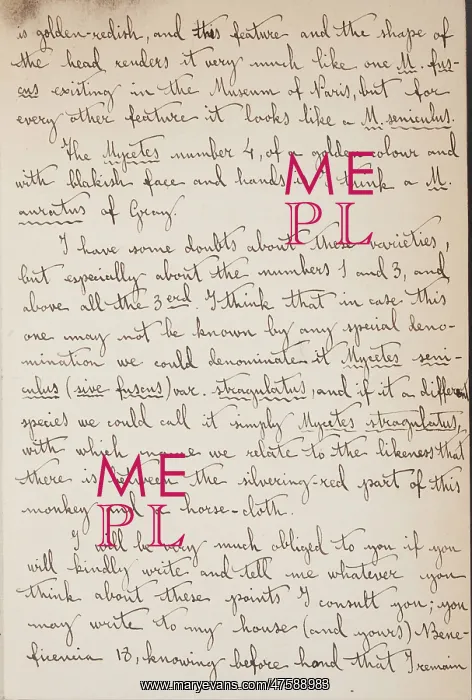 is golden-redish, and this feature and the shape of
the head renders it very much like one M. fus-
cus existing in the Museum of Paris, but for
every other feature it looks like a M. seniculus.
The Mycetes number 4, of a golden colour and
with blakish face and hands I think a M.
auratus of Gray.
I have some doubts about these varieties,
but especially about the numbers 1 and 3, and
above all the 3erd. I think that in case this
one may not be known by any special deno-
mination we could denominate it Mycetes seni-
culus (sive fuscus) var. stragulatus, and if it a different
species we could call it simply Mycetes stragulatus,
with which name we relate to the likeness that
there is between the silvering-red part of this
monkey and a horse-cloth.
I will be very much obliged to you if you
will kindly write and tell me whatever you
think about these points I consult you; you
may write to my house (and yours) Bene-
ficencia 18, knowing before hand that I remain
ME
PL
ME
PL
www.maryevans.com/47588983